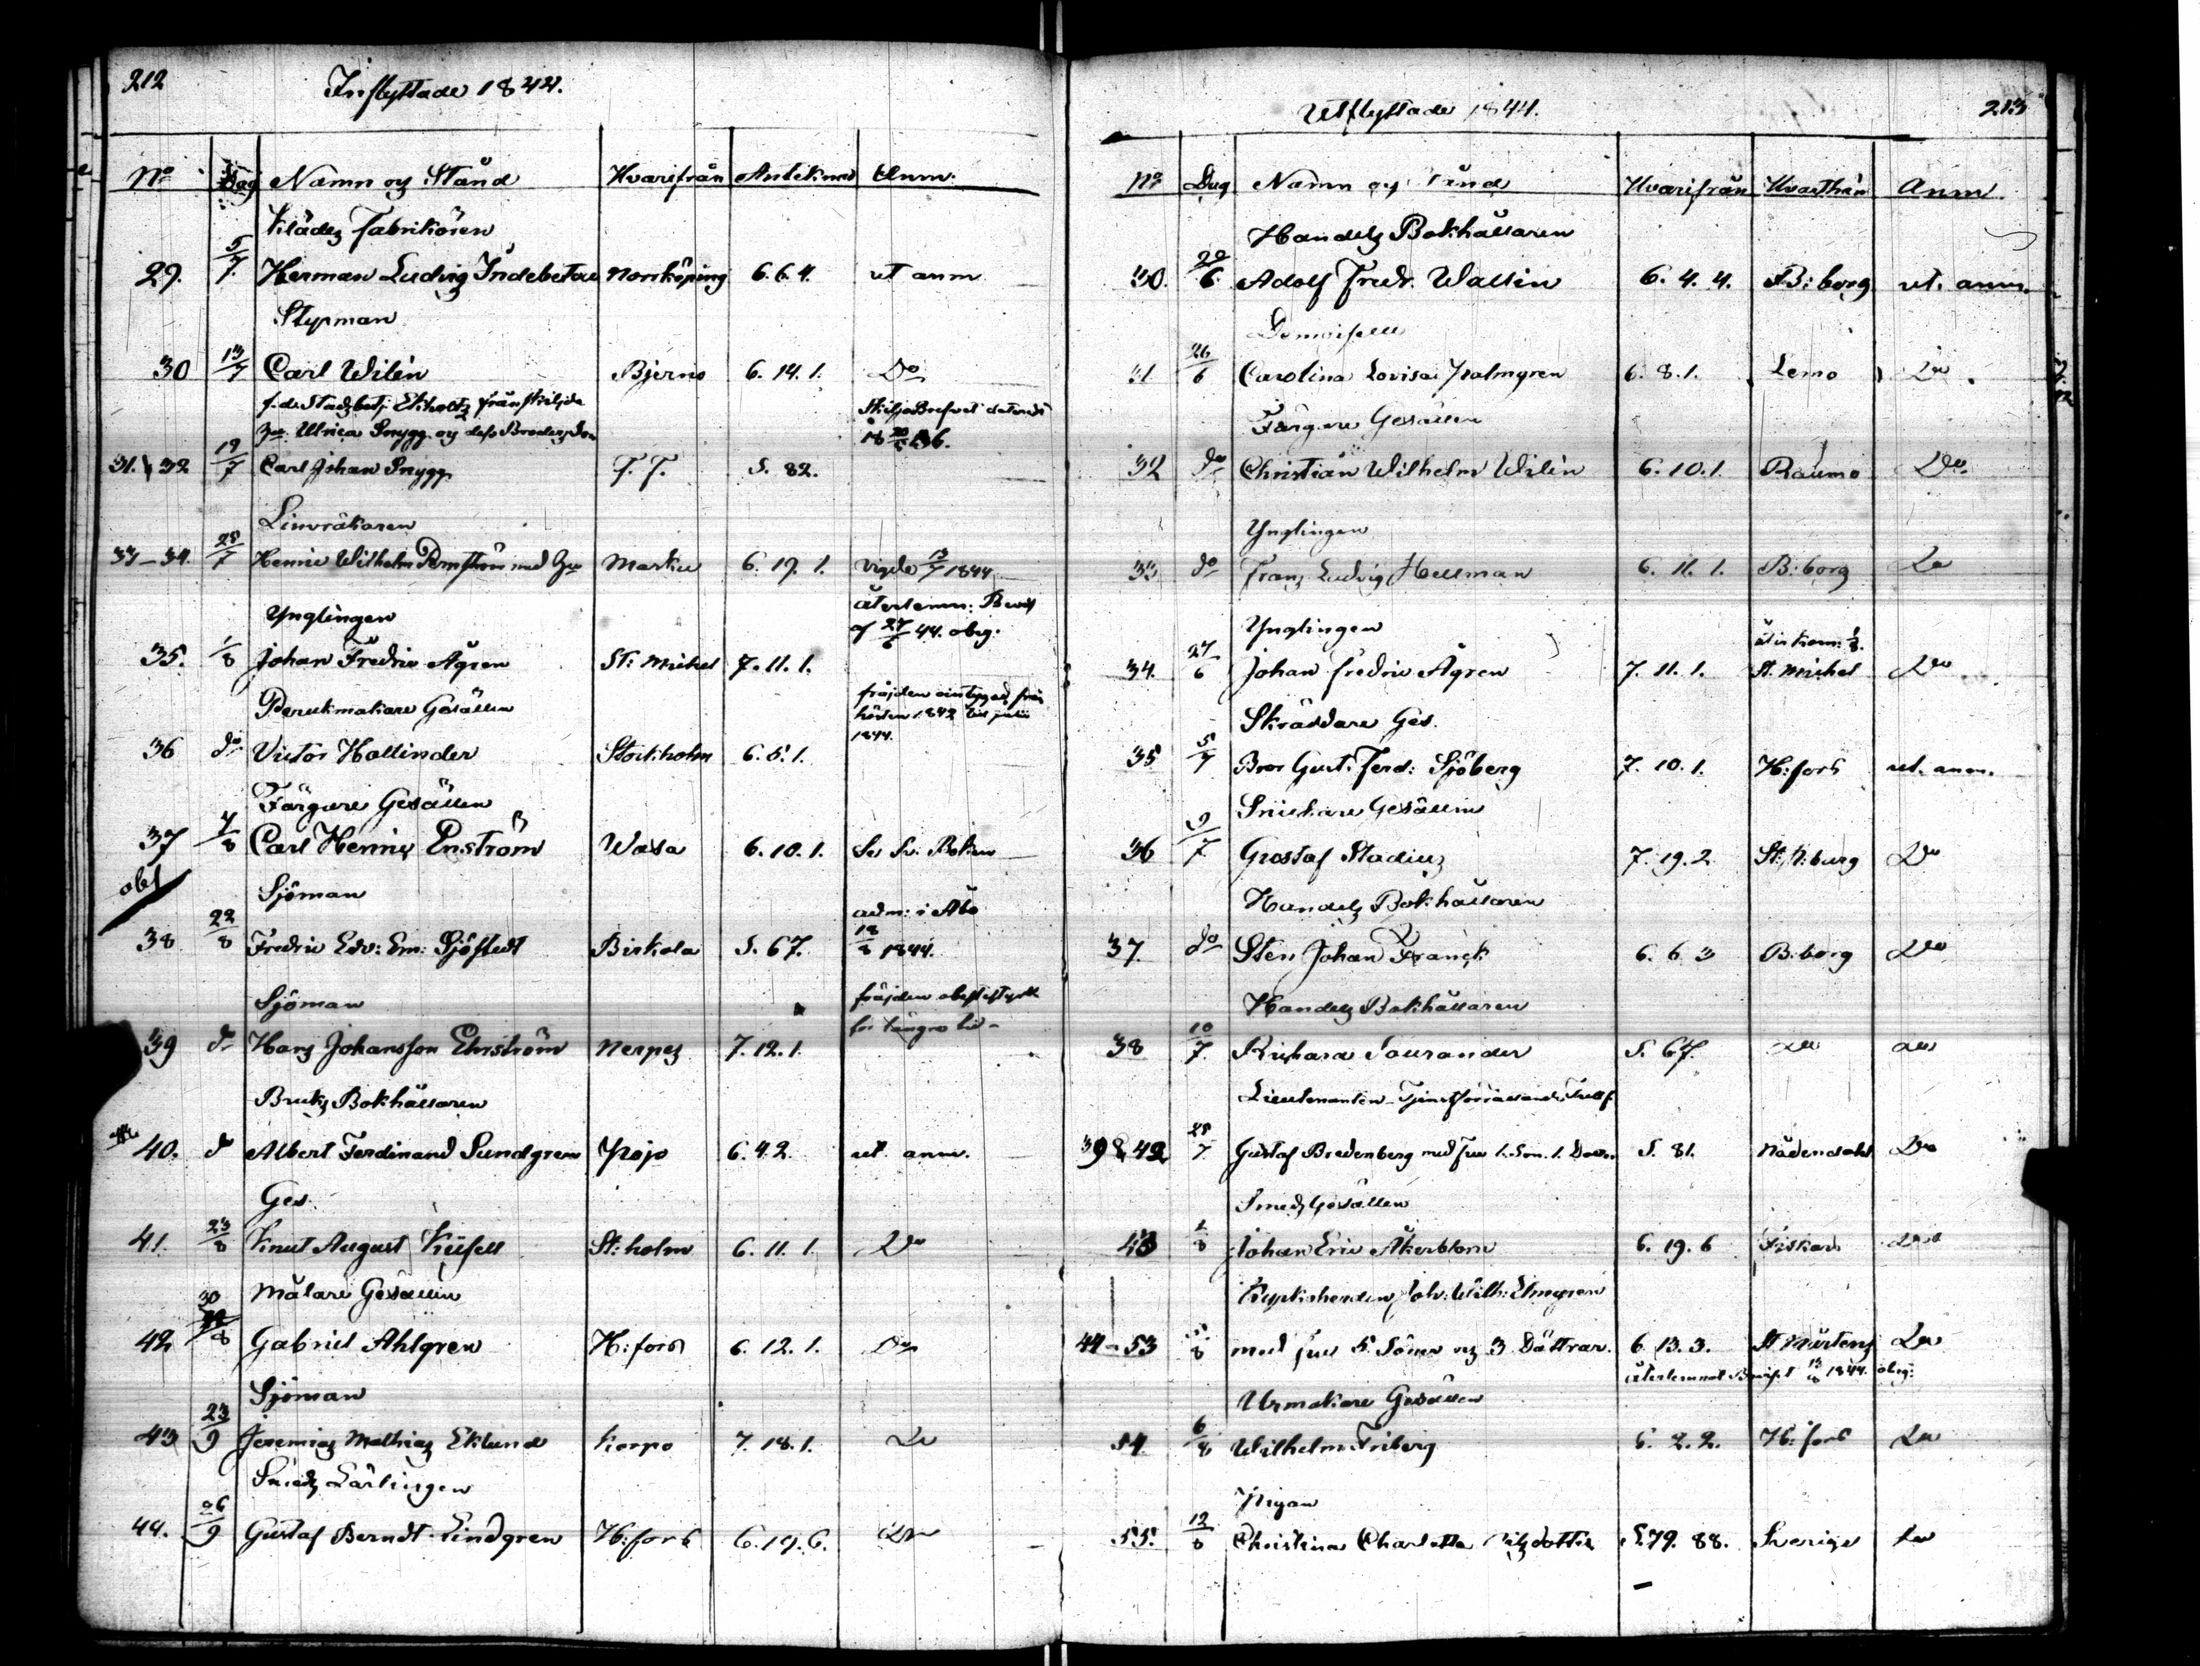 212
Inflyttade 1844.
No Dag Namn og Stånd Hvarifrån Anteknad Anm:
Klädes Fabrikören
29. 5/7. Herman Ludvig Indebetou Norrköping 6.6.4. ut anm
Styrman
30 13/7 Carl Wilén Bjerno 6. 14. 1. Do
f.d. Stadsbetj: Ekholtz frånskiljda SkiljoBrefvet daterat
Ulrica Snygg og dess Broders Son 18 36.
31. 32 19/7 Carl Johan Snygg T. T. S. 82.
33–34. 25/7 Henric Wilhelm med Hu Masku 6. 19. 1. vigde 13/7 1844
Ynglingen återlemn: Bevis
af 27/6 44. obeg.
35. 1/8 Johan Fredric Ågren St: Michel 7. 11. 1.
Perukmakare Gesällen fräjden
hösten 1842 till
1844.
36 do Victor Hollinder Stockholm 6. 5. 1.
Färgare Gesällen
37 7/8 Carl Henric Enström Wasa 6. 10. 1. Se Sv. Boken
obs
Sjöman adm: i Åbo
38 22/8 Fredric Edv: Em: Sjöstedt Birkala S. 67. 18/8 1844.
Sjöman fräjden
för längre tid
39 do Hans Johansson Ehrström Nerpes 7. 12. 1.
Bruks Bokhållaren
40. do Albert Ferdinand Sundgren Pojo 6. 4. 2. ut. anm.
Ges.
41. 23/8 Knut August St: holm 6. 11. 1. Do
Målare Gesällen
42 30/8 Gabriel Ahlgren H:fors 6. 12. 1. Do
Sjöman
43 23/9 Jeremias Mathias Eklund Korpo 7. 18. 1. Do
Smeds Lärlingen
44. 26/9 Gustaf Berndt Lindgren H:fors 6. 19. 6. Do
Utflyttade 1844.
213
No Dag Namn og Stånd Hvarifrån Hvarthän Anm
Handels Bokhållaren
30. 20/6 Adolf Fredr. Wallin 6. 4. 4. B:borg ut. anm.
Demoiselle
31 26/6 Carolina Lovisa Palmgren 6. 8. 1. Lemo Do
Färgare Gesällen
32 do Christian Wilhelm Wilén 6. 10. 1. Raumo Do
Ynglingen
33 do Frans Ludvig Hellman 6. 11. 1. B:borg Do
Ynglingen återkom: 1/8.
34. 27/6 Johan Fredric Ågren 7. 11. 1. St. Michel Do
Skräddare Ges.
35 5/7 Bror Gust: Ferd: Sjöberg 7. 10. 1. H:fors ut. anm.
Snickare Gesällen
36 9/7 Gustaf Stadius 7. 19. 2. St. P:burg Do
Handels Bokhållaren
37. do Sten Johan Franck 6. 6. 3 B:borg Do
Handels Bokhållaren
38 10/7. Richard Saurander S. 67. Do Do
Lieutenanten
39 & 42 25/7 Gustaf Bredenberg med fru 1. Son. 1. S. 81. Nådendahl Do
Smeds Gesällen
43 2/8 Johan Eric Åkerblom 6. 19. 6 Fiskars Do
Joh: Wilh: Elmgren
44–53 8 med fru 5 Söner og 3 Döttrar. 6. 13. 3. St Mårtens Do
återlemnat 1844. obeg:
Urmakare Gesällen
54 6/8 Wilhelm Friberg 6. 2. 2. H:fors Do
Pigan
55. 12/8 Christina Charlotta S. 79. 88. Sverige Do